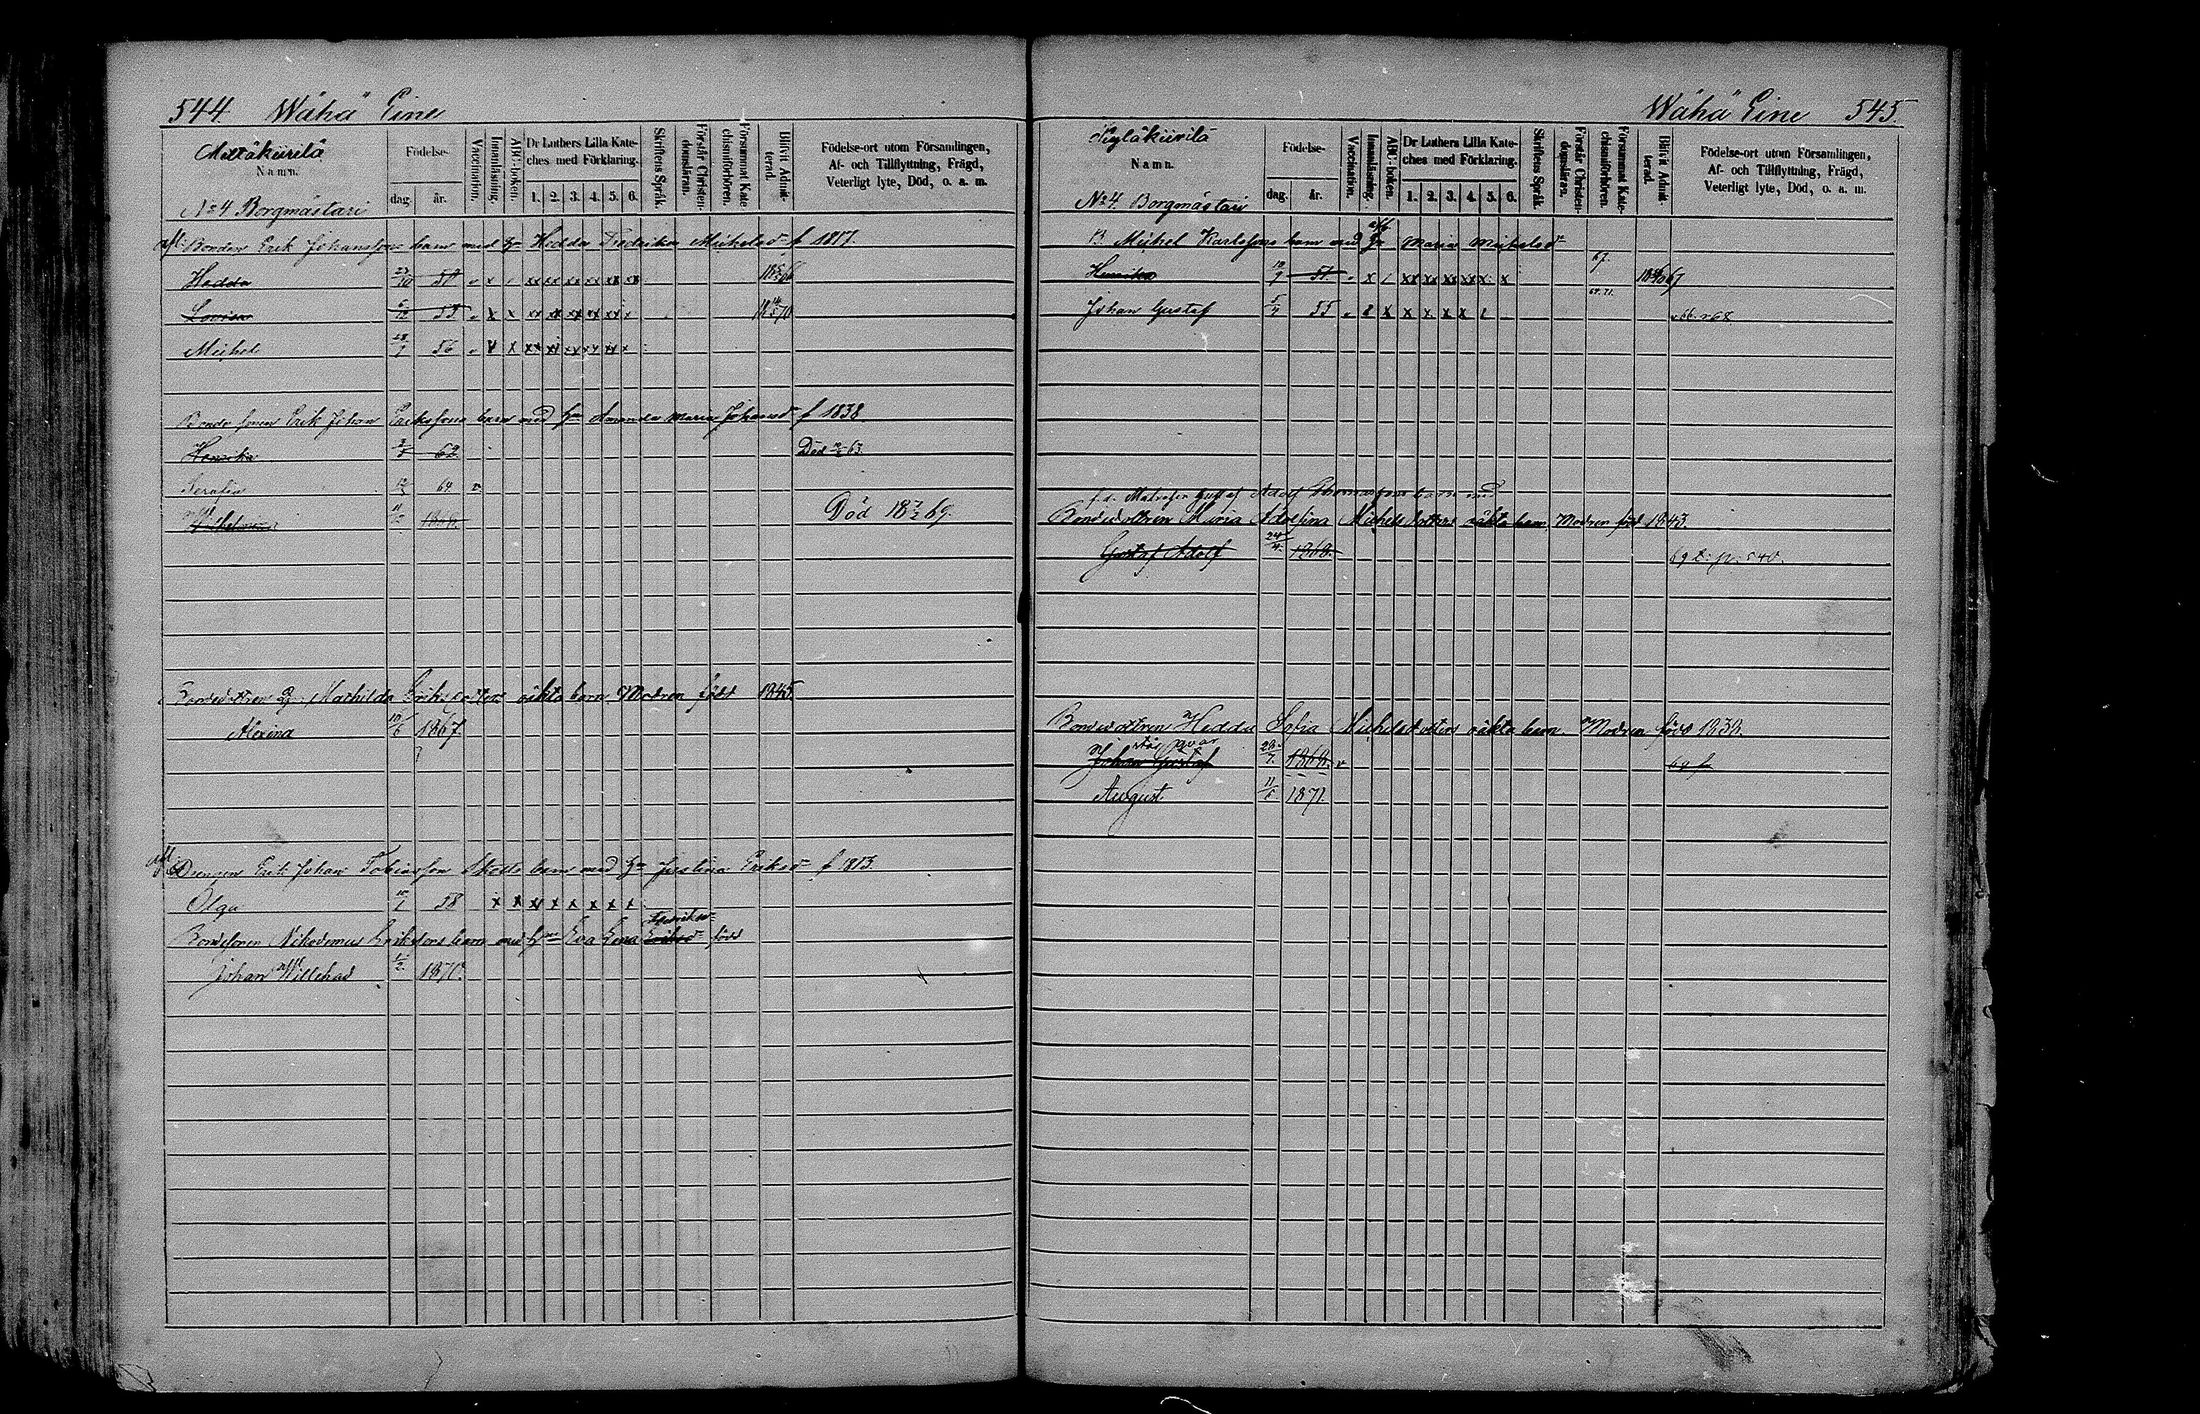 544 Wähä Eine
Mettäkiirilä
Namn.
Födelse-
dag.
år.
Vaccination.
Innanläsning.
ABC-boken.
Dr Luthers Lilla Kate-
ches med Förklaring.
1. 2. 3. 4. 5. 6.
Skriftens Språk.
Förstår Christen-
domsläran.
Försummat Kate-
chismiförhören.
Blifvit Admit-
terad.
Födelse-ort utom Församlingen,
Af- och Tillflyttning, Frägd,
Veterligt lyte, Död, o. a. m.
No 4 Borgmästari
afl: Bonden Erik Johanssons barn med Hu Hedda Fredrika Michelsdr f 1817.
Hedda 23/10 50
Lovisa 6/12 53
Michel 28/9 56
Bonde sonen Erik Johan Erikssons barn med Hu Amanda Maria Johansdr f 1838.
Henrika 62 Död 63.
Serafia 64 v
Wilhelmina 1868. Död 18 69.
Bondedottren Mathilda Eriksdotters oäkta barn Modren född 1845.
Alexina 10/6 1867.
afl: Drengen Erik Johan Tobiasson barn med Hu Justina Eriksdr f 1813.
Olga 10/1 58
Bondesonen Nikodemus Erikssons barn med Hu Eva Lena Eriksdr född
Johan Willehad 1/2 1870.
Wähä Eine 545.
Namn.
Födelse-
dag.
år.
Vaccination.
Innanläsning.
ABC-boken.
Dr Luthers Lilla Kate-
ches med Förklaring.
1. 2. 3. 4. 5. 6.
Skriftens Språk.
Förstår Christen-
domsläran.
Försummat Kate-
chismiförhören.
Blifvit Admit-
terad.
Födelse-ort utom Församlingen,
Af- och Tillflyttning, Frägd,
Veterligt lyte, Död, o. a. m.
No 4. Borgmästari
B. Michel Karlssons barn med afl. Hu Maria Michelsdr
Henrika 51 67.
Johan Gustaf 55 69.71.
f.d. Matrosen Gustaf Adolf Thomassons barn med
Bondedottren Maria Adolfina Michelsdotters oäkta barn. Modren född 1843.
Gustaf Adolf 24/4. 1868. 69 t. p. 540.
Bondedottren Hedda Sofia Michelsdotters oäkta barn. Modren född 1838.
står qvar
Johan Gustaf 1868. v
August 11/5 1871.